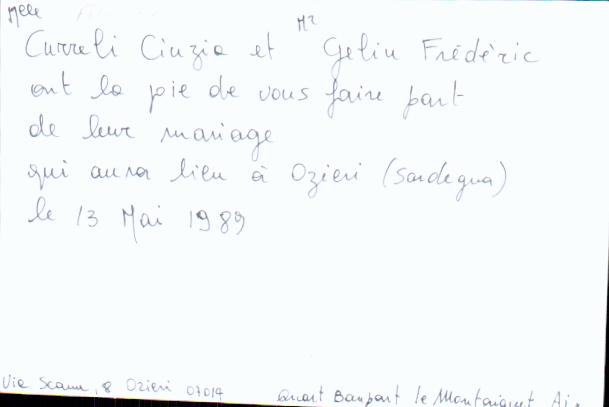 Melle Mr
Curreli Cinzia et Gelin Frédéric
ont la joie de vous faire part
de leur mariage
qui aura lieu à Ozieri (Sardegna)
le 13 Mai 1989
Via Scanu, 8 Ozieri 07014
Le Montaiguet